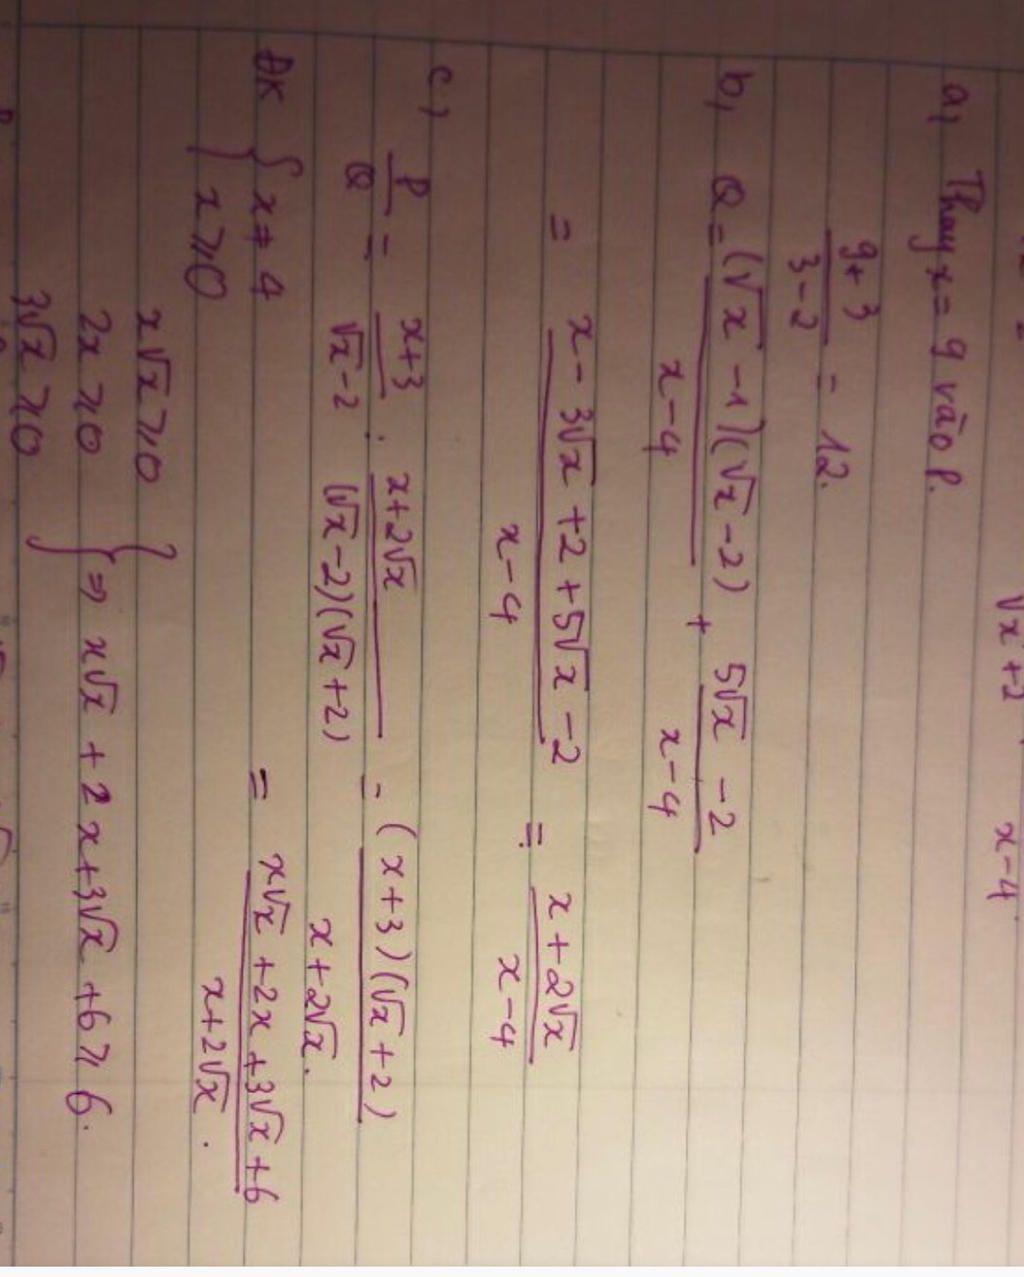 √x+2 x-4
a, Thay x = 9 vào P.
9+3/3-2 = 12.
b, Q = (√x -1)(√x -2)/x-4 + 5√x -2/x-4
= x - 3√x +2 +5√x -2/x-4 = x+2√x/x-4
c, P/Q = x+3/√x-2 : x+2√x/(√x-2)(√x+2) = (x+3)(√x+2)/x+2√x.
ĐK { x ≠ 4 = x√x +2x +3√x +6/x+2√x.
x ⩾ 0
x√x ⩾ 0
2x ⩾ 0 } => x√x + 2x+3√x +6 ⩾ 6.
3√x ⩾ 0